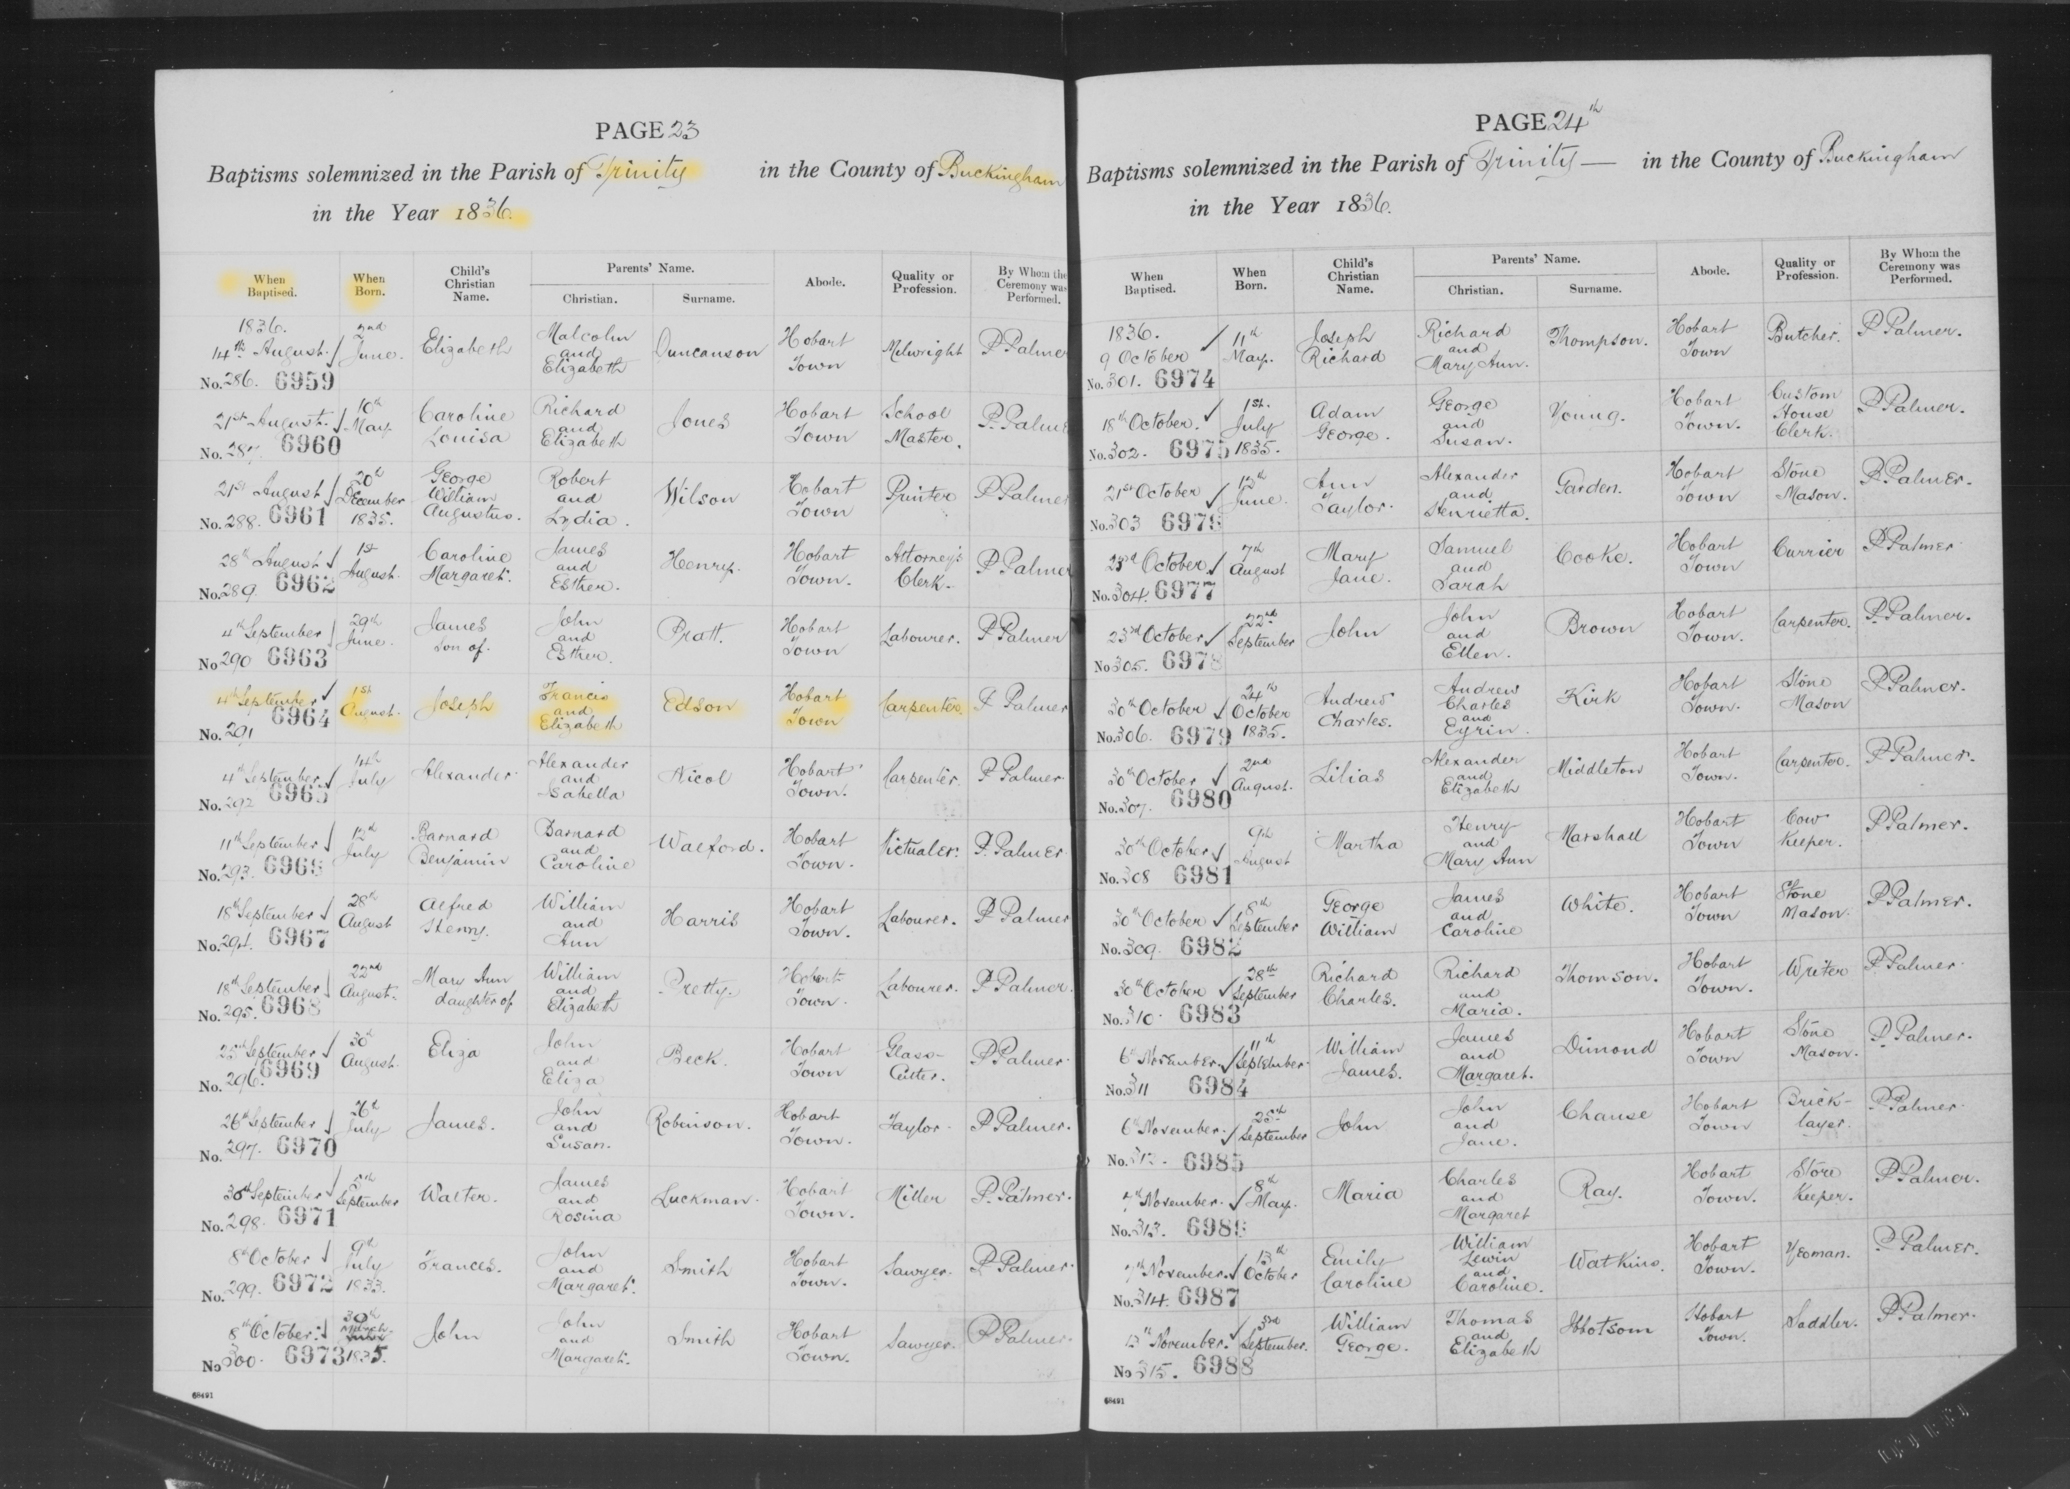 PAGE 23
Baptisms solemnized in the Parish of Trinity in the County of Buckingham
in the Year 1836.
When Baptised. When Born. Child's Christian Name. Parents' Name. Christian. Surname. Abode. Quality or Profession. By Whom the Ceremony was Performed.
1836. 14th August. 2nd June. Elizabeth Malcolm and Elizabeth Duncanson Hobart Town Milwright P Palmer
No. 286. 6959
21st August. 10th May Caroline Louisa Richard and Elizabeth Jones Hobart Town School Master. P. Palmer
No. 287. 6960
21st August 20th December 1835. George William Augustus. Robert and Lydia. Wilson Hobart Town Printer P Palmer
No. 288. 6961
28th August 1st August. Caroline Margaret. James and Esther. Henry. Hobart Town. Attorney's Clerk. P Palmer
No. 289. 6962
4th September 29th June. James Son of. John and Esther. Pratt. Hobart Town Labourer. P Palmer
No 290 6963
4th September 1st August. Joseph Francis and Elizabeth Edson Hobart Town Carpenter. P Palmer
No. 291 6964
4th September 14th July Alexander Alexander and Isabella Nicol Hobart Town. Carpenter. P Palmer
No. 292 6965
11th September 12th July Barnard Benjamin Barnard and Caroline Walford. Hobart Town. Victualer. P. Palmer
No. 293. 6966
18th September 28th August Alfred Henry. William and Ann Harris Hobart Town. Labourer. P Palmer
No. 294. 6967
18th September 22nd August. Mary Ann daughter of William and Elizabeth Pretty. Hobart Town. Labourer. P Palmer.
No. 295. 6968
25th September 30th August. Eliza John and Eliza Beck. Hobart Town Glass-Cutter. P Palmer.
No. 296. 6969
26th September 26th July James. John and Susan. Robinson. Hobart Town. Taylor. P Palmer.
No. 297. 6970
30th September September Walter. James and Rosina Luckman. Hobart Town. Miller P. Palmer.
No. 298. 6971
8th October 9th July 1833. Frances. John and Margaret. Smith Hobart Town. Sawyer. P Palmer.
No. 299. 6972
8th October. 30th 1835. John John and Margaret. Smith Hobart Town. Sawyer. P Palmer.
No 300. 6973
68491
PAGE 24th
Baptisms solemnized in the Parish of Trinity — in the County of Buckingham
in the Year 1836.
When Baptised. When Born. Child's Christian Name. Parents' Name. Christian. Surname. Abode. Quality or Profession. By Whom the Ceremony was Performed.
1836. 9 October 11th May. Joseph Richard Richard and Mary Ann. Thompson. Hobart Town Butcher. P Palmer.
No. 301. 6974
18th October. 1st July 1835. Adam George. George and Susan. Young. Hobart Town. Custom House Clerk. P Palmer.
No. 302. 6975
21st October 12th June. Ann Taylor. Alexander and Henrietta. Garden. Hobart Town Stone Mason. P Palmer.
No. 303 6976
23rd October 7th August Mary Jane. Samuel and Sarah Cooke. Hobart Town Currier P Palmer
No. 304. 6977
23rd October 22nd September John John and Ellen. Brown Hobart Town. Carpenter. P. Palmer.
No 305. 6978
30th October 24th October 1835. Andrew Charles. Andrew Charles and Eyrin. Kirk Hobart Town. Stone Mason P Palmer.
No. 306. 6979
30th October 2nd August. Lilias Alexander and Elizabeth Middleton Hobart Town. Carpenter. P Palmer.
No. 307. 6980
30th October 9th August Martha Henry and Mary Ann Marshall Hobart Town Cow Keeper. P Palmer.
No. 308 6981
30th October 8th September George William James and Caroline White. Hobart Town Stone Mason. P Palmer.
No. 309. 6982
30th October 28th September Richard Charles. Richard and Maria. Thomson. Hobart Town. Writer P Palmer.
No. 310. 6983
6th November. 11th September. William James. James and Margaret. Dimond Hobart Town Stone Mason. P Palmer.
No. 311 6984
6th November. 25th September John John and Jane. Chause Hobart Town Brick-layer. P Palmer.
No. 312. 6985
7th November. 8th May. Maria Charles and Margaret Ray. Hobart Town. Store Keeper. P Palmer.
No. 313. 6986
7th November. 13th October Emily Caroline William Lewin and Caroline. Watkins. Hobart Town. Yeoman. P Palmer.
No. 314. 6987
13th November. 3rd September. William George. Thomas and Elizabeth Ibbotson Hobart Town. Saddler. P Palmer.
No 315. 6988
68491